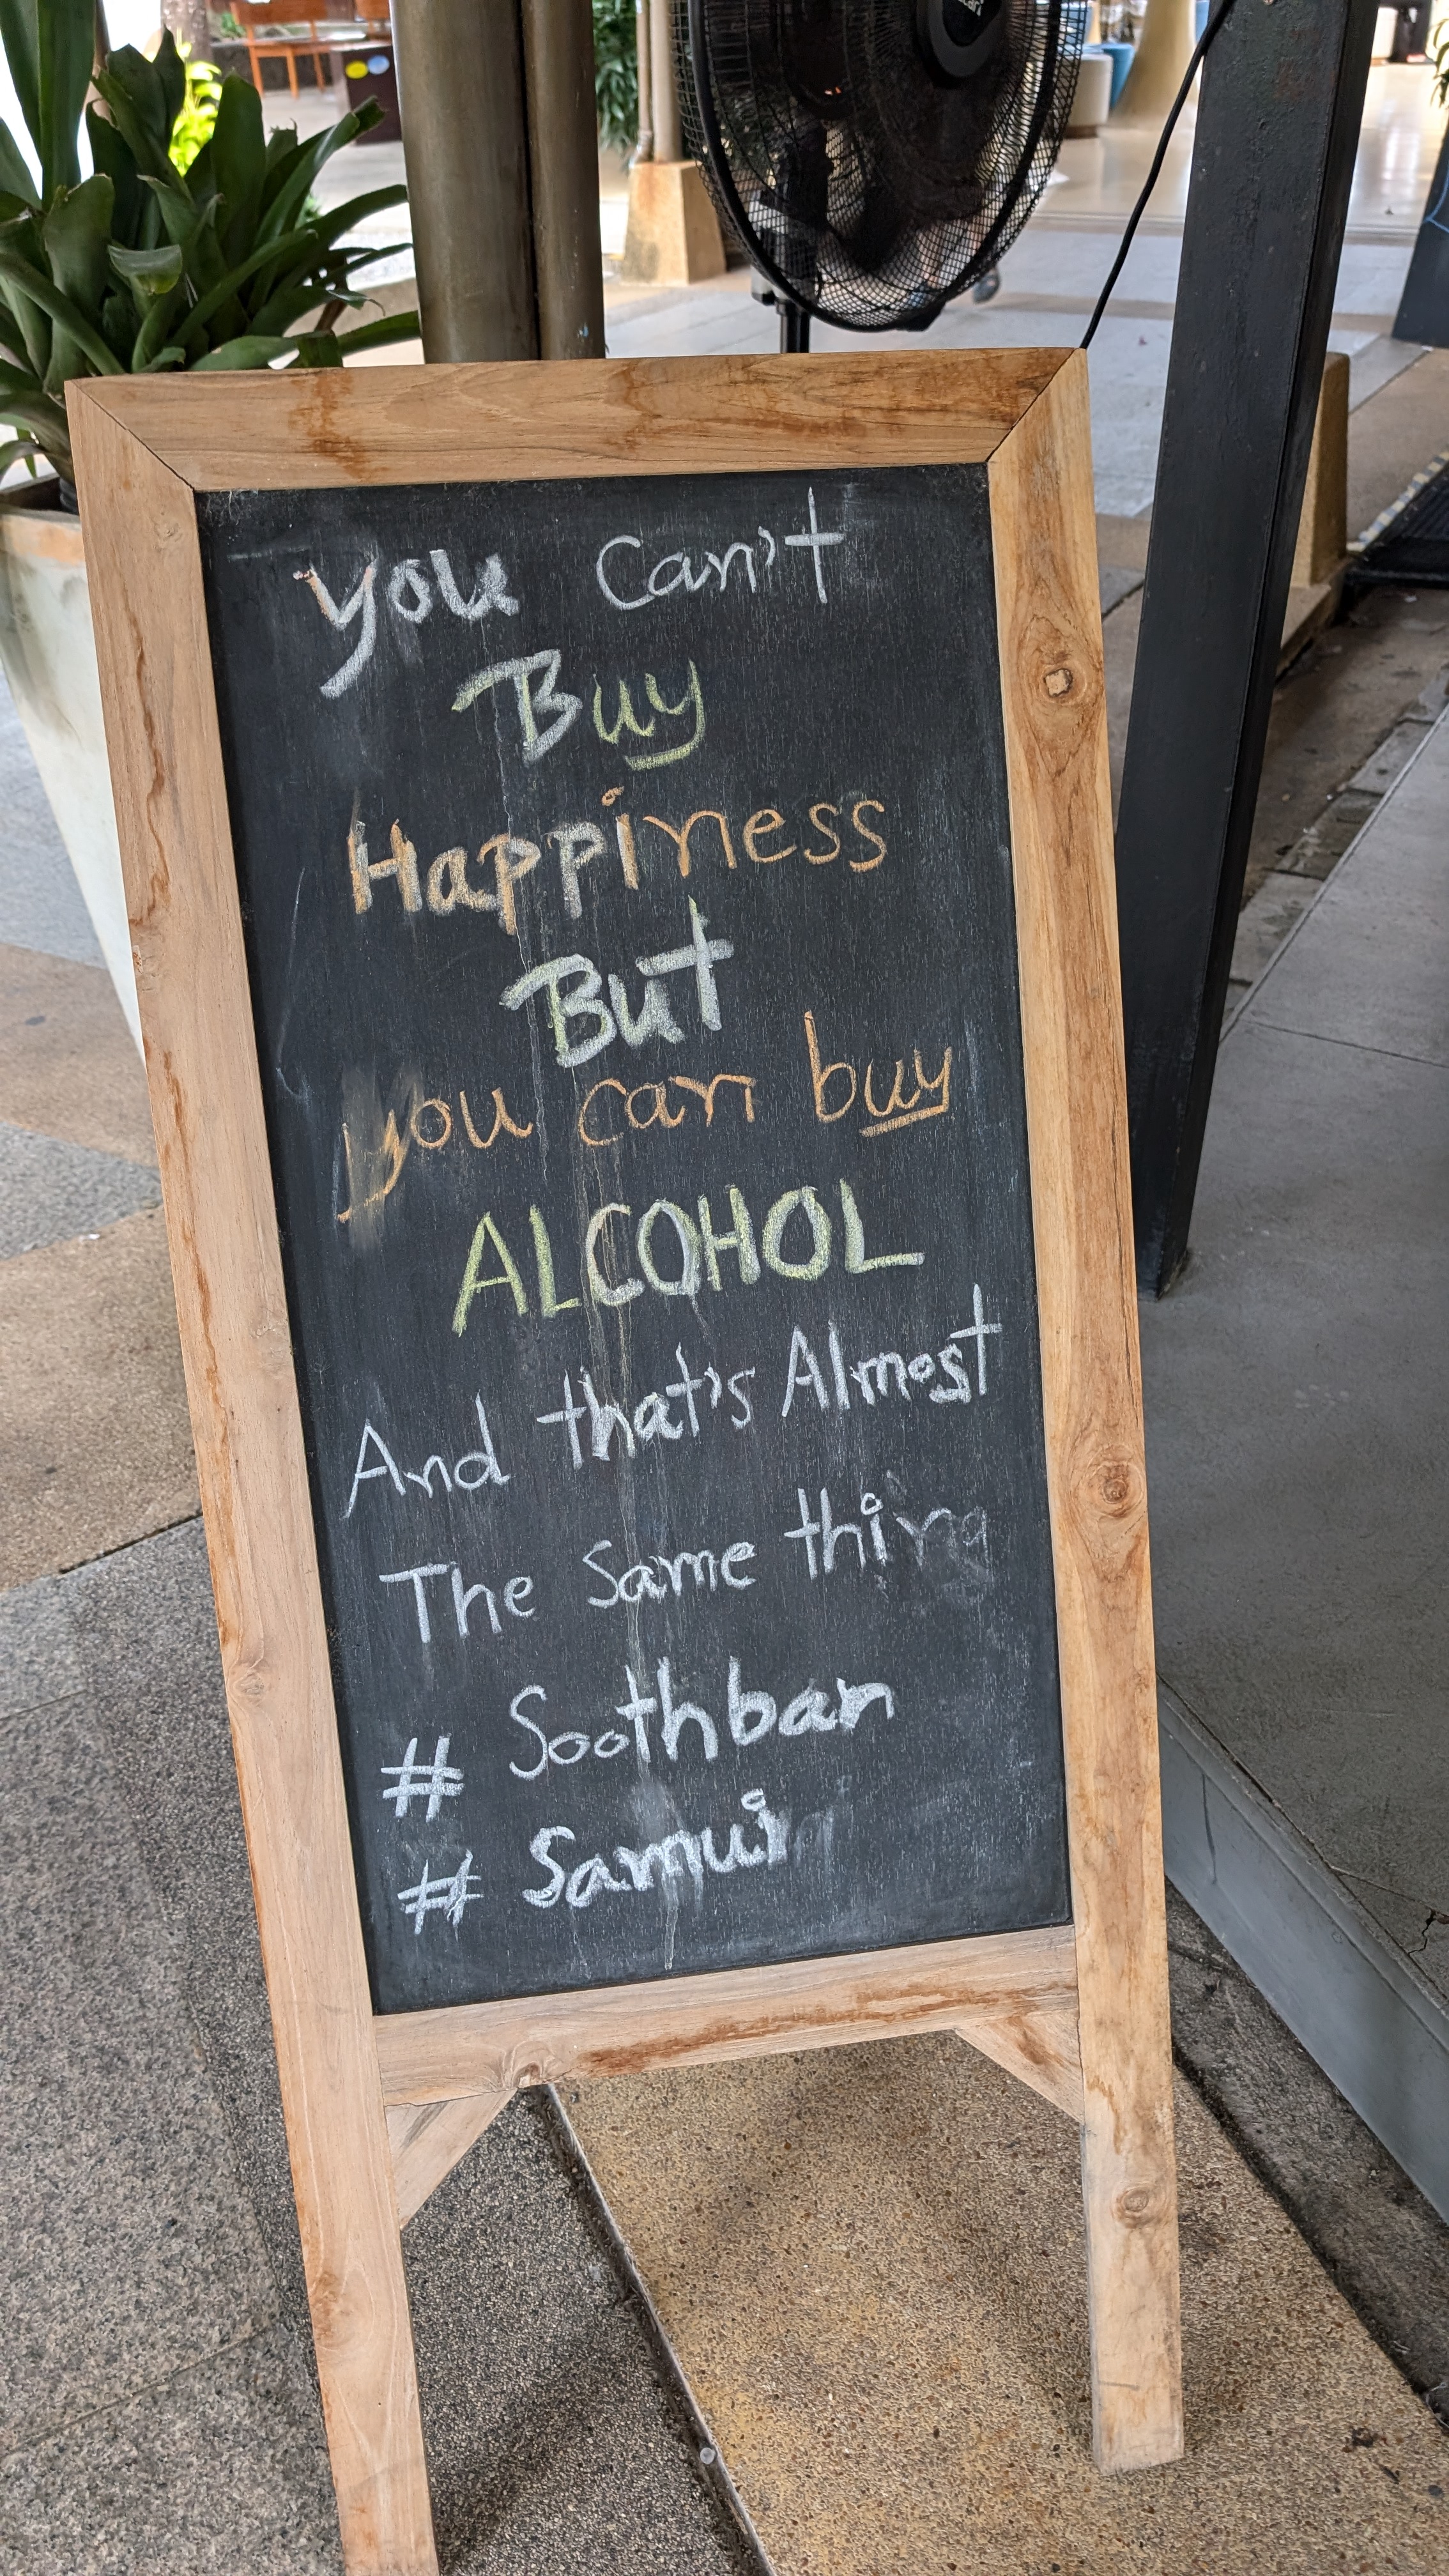 you can't
Buy
Happiness
But
you can buy
ALCOHOL
And that's Almost
The Same thing
# Soothban
# Samui